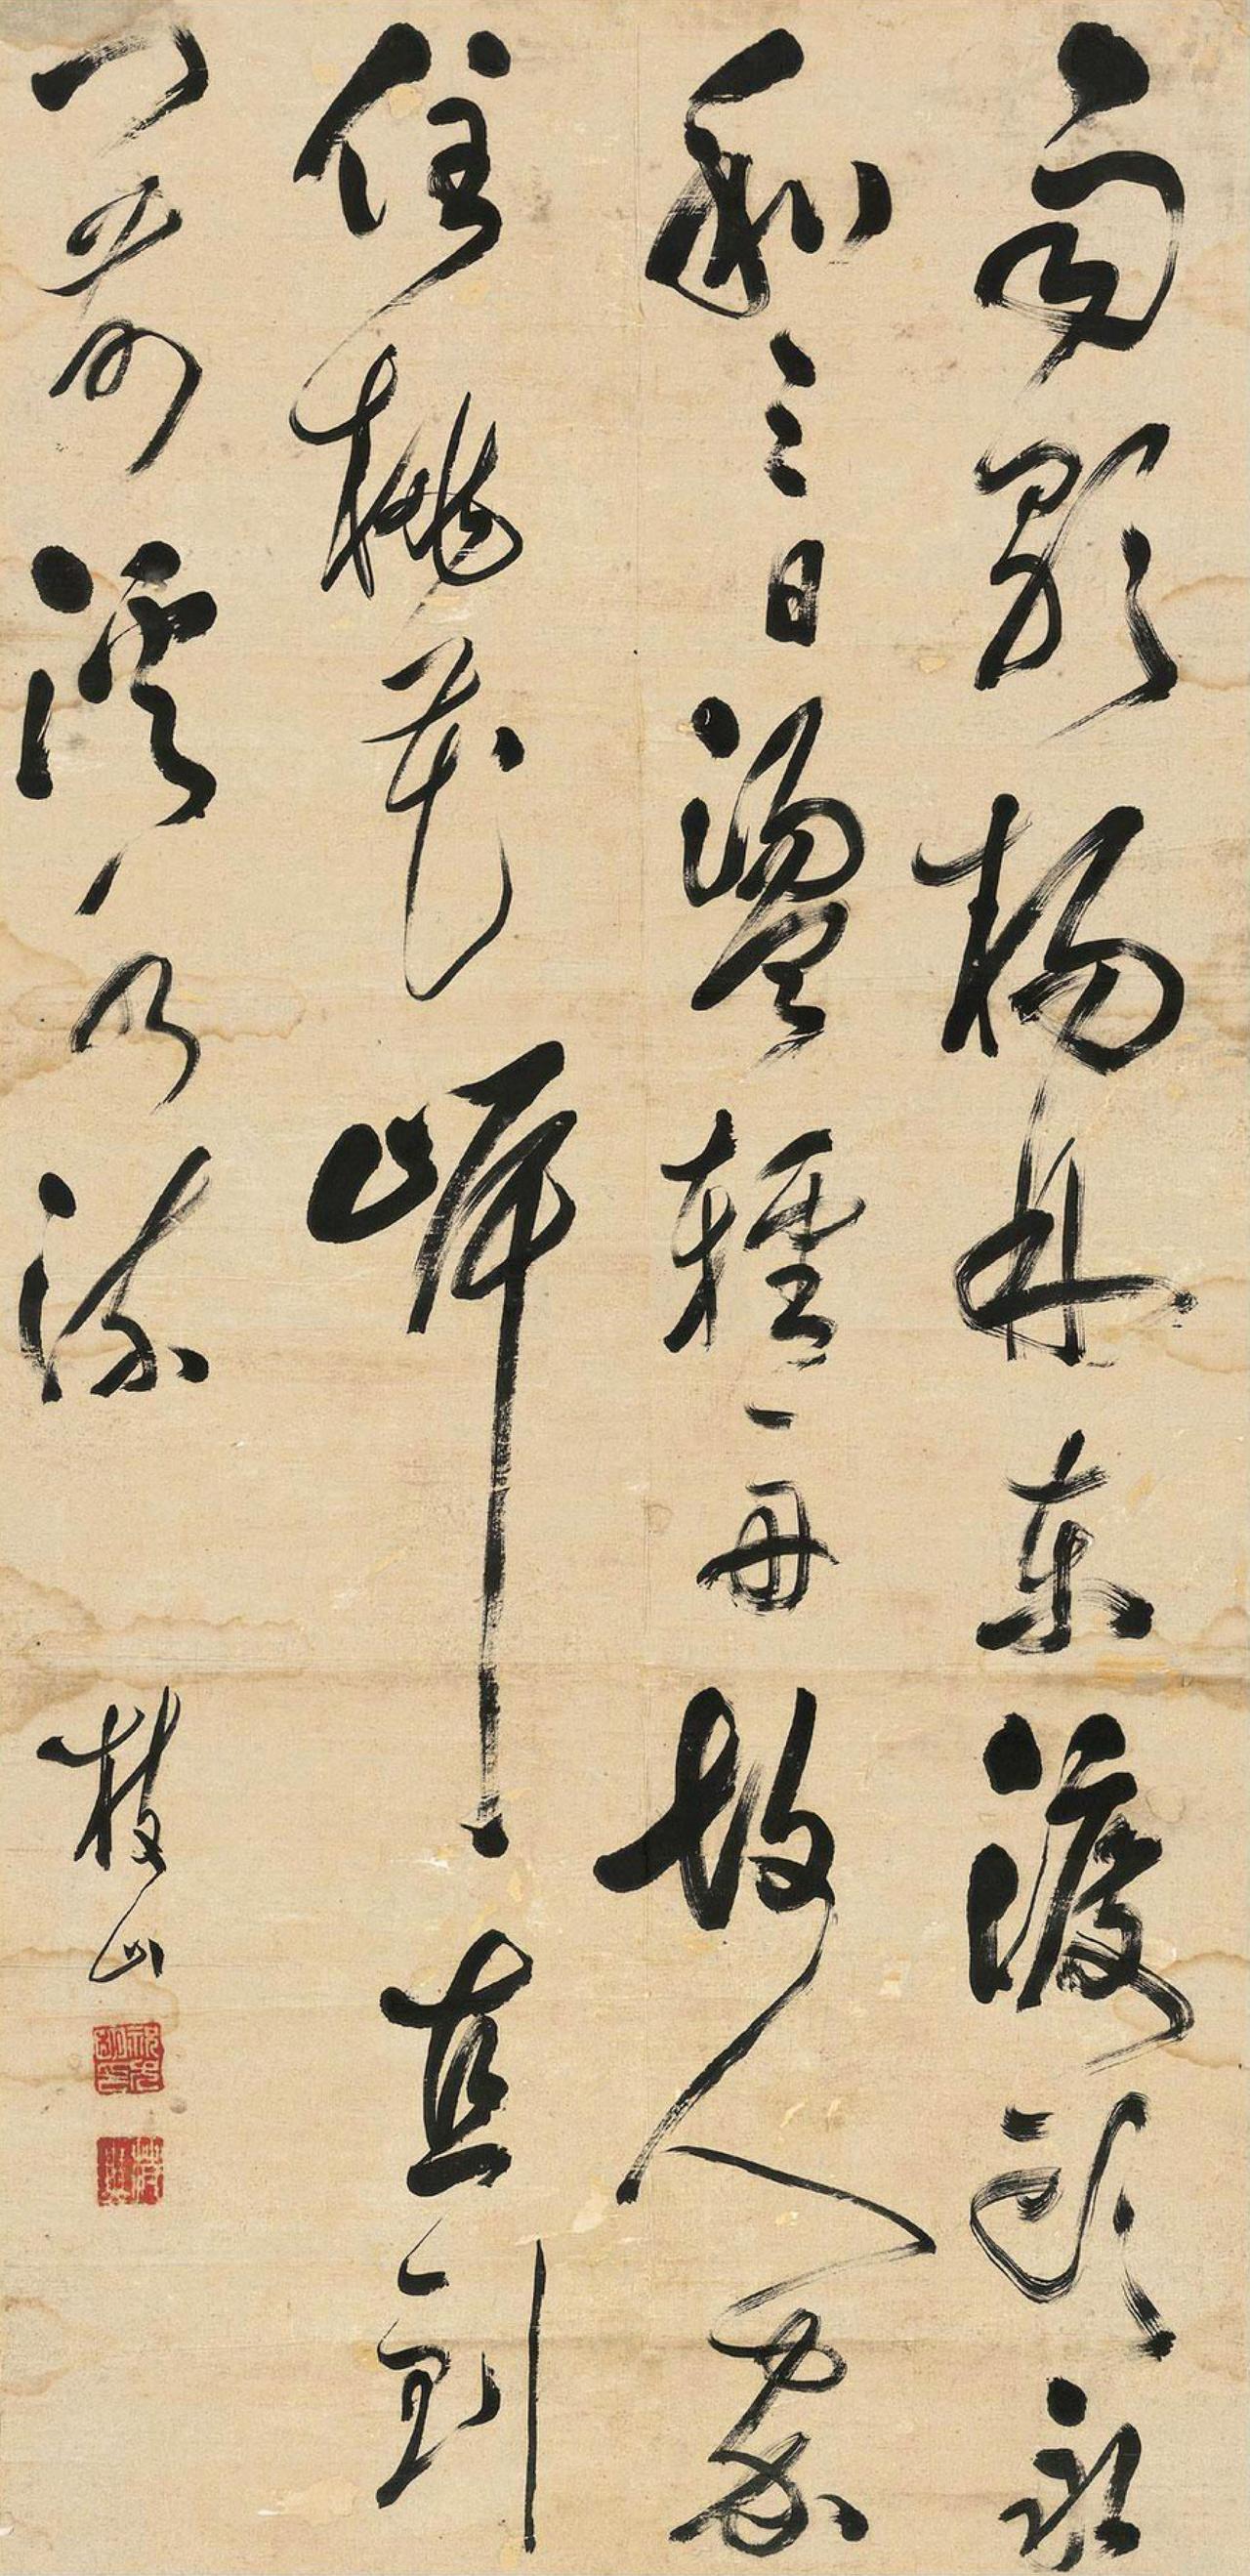 雨歇楊林東渡頭永
和三日盪輕舟故人家
住桃花岸直到
門前溪水流
枝山
祝允明印